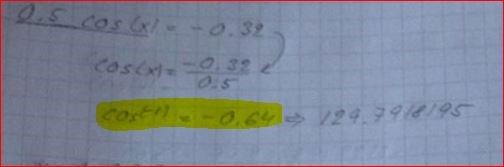 0.5 cos(x) = -0.32
cos(x) = -0.32 / 0.5
cos(-1) = -0.64 ⇒ 129.7918195